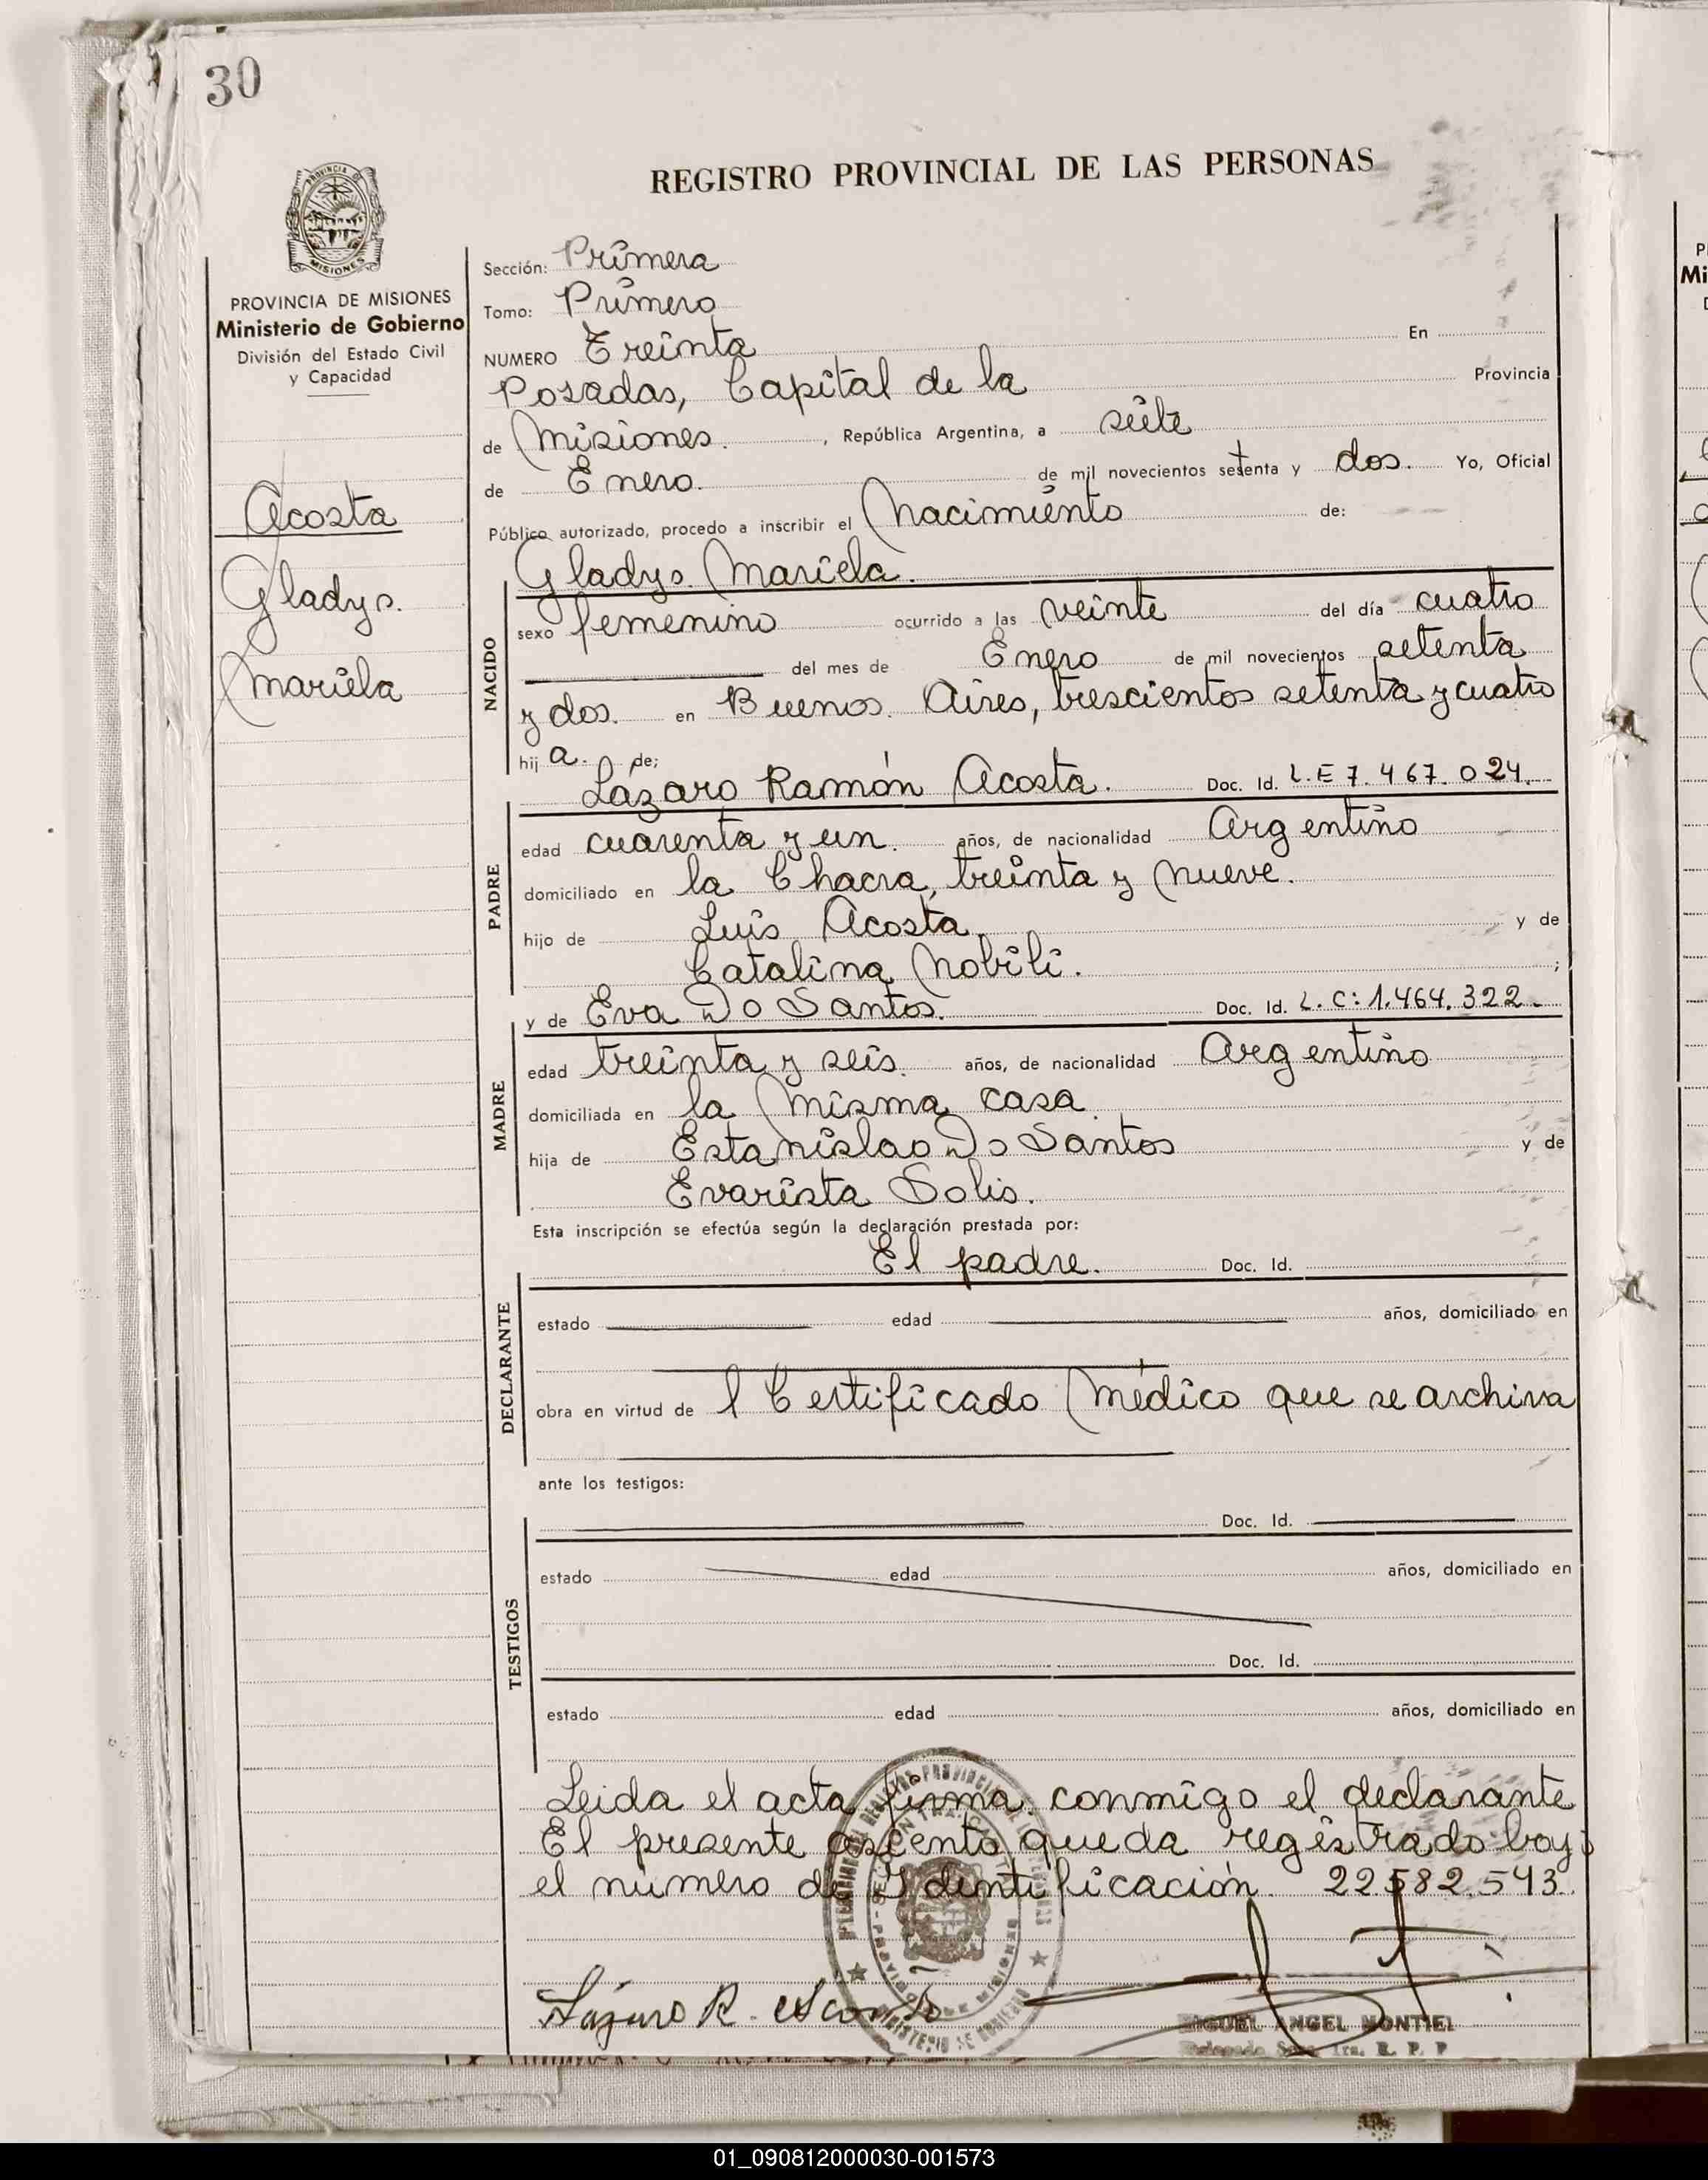 30
REGISTRO PROVINCIAL DE LAS PERSONAS
PROVINCIA DE MISIONES
Ministerio de Gobierno
División del Estado Civil
y Capacidad
Acosta
Gladys.
Mariela
Sección: Primera
Tomo: Primero
NUMERO Treinta En
Posadas, Capital de la Provincia
de Misiones. , República Argentina, a siete
de Enero. de mil novecientos setenta y dos. Yo, Oficial
Público autorizado, procedo a inscribir el Nacimiento de:
Gladys Mariela.
NACIDO
sexo femenino ocurrido a las veinte del día cuatro
del mes de Enero de mil novecientos setenta
y dos. en Buenos Aires, trescientos setenta y cuatro
hij a. de;
Lázaro Ramón Acosta. Doc. Id. L.E 7.467.024.
PADRE
edad cuarenta y un. años, de nacionalidad Argentino
domiciliado en la Chacra, treinta y nueve.
hijo de Luis Acosta. y de
Catalina Nobili. ;
y de Eva Do Santos. Doc. Id. L.C: 1.464.322.
MADRE
edad treinta y seis. años, de nacionalidad Argentino
domiciliada en la misma casa.
hija de Estanislao Do Santos y de
Evarista Solis.
Esta inscripción se efectúa según la declaración prestada por:
El padre. Doc. Id.
DECLARANTE
estado edad años, domiciliado en
obra en virtud de l Certificado Médico que se archiva
ante los testigos:
Doc. Id.
TESTIGOS
estado edad años, domiciliado en
Doc. Id.
estado edad años, domiciliado en
Leida el acta firma conmigo el declarante
El presente ascento queda registrado bajo
el número de Identificación 22.582.543.
Lázaro R. Acosta
MIGUEL ANGEL MONTIEL
01_090812000030-001573